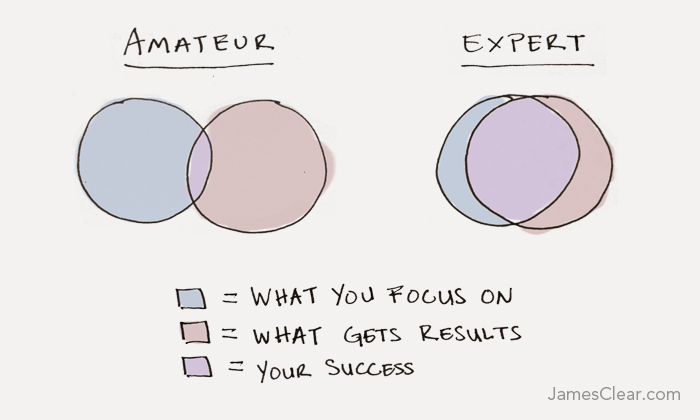 AMATEUR
EXPERT
= WHAT YOU FOCUS ON
= WHAT GETS RESULTS
= YOUR SUCCESS
JamesClear.com